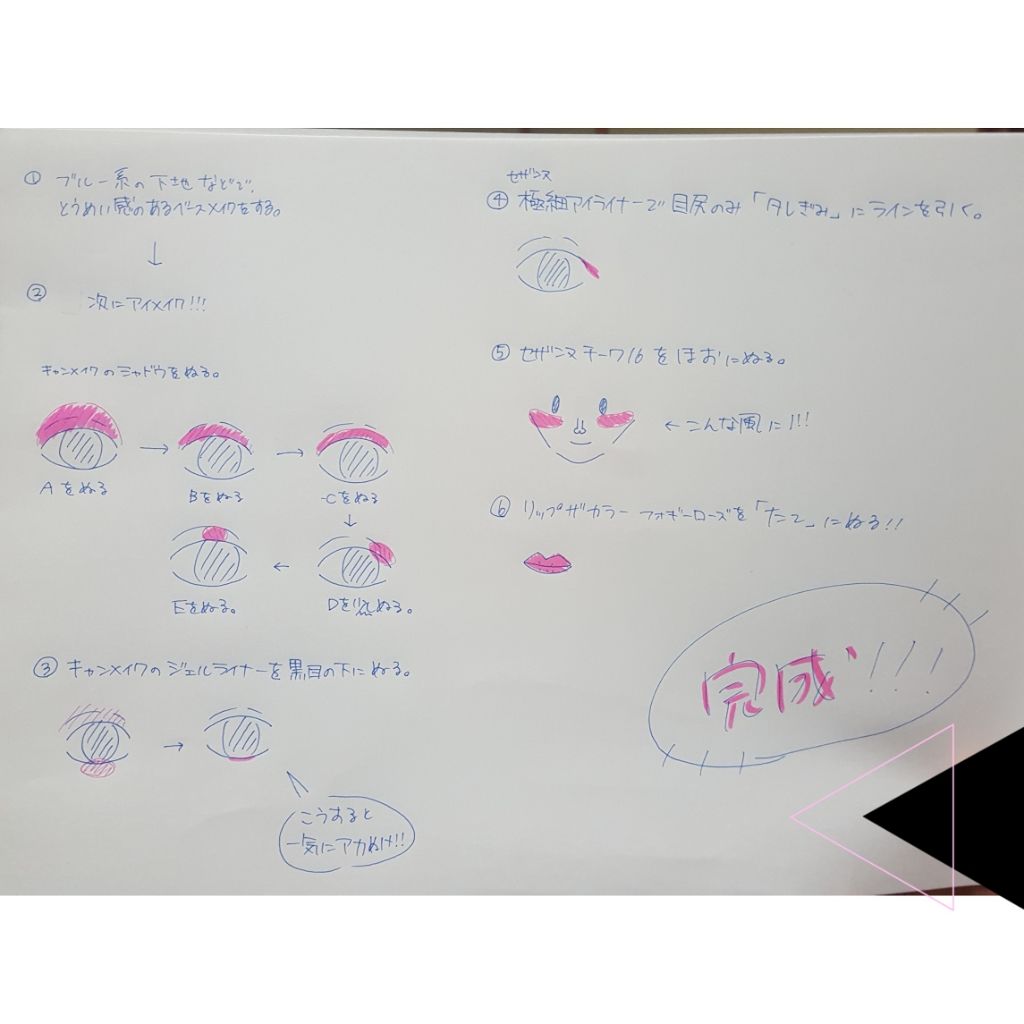 ① ブルー系の下地などで、
とうめい感のあるベースメイクをする。
② 次にアイメイク!!!
キャンメイクのシャドウをぬる。
Aをぬる
Bをぬる
Cをぬる
Dを少しぬる。
Eをぬる。
③ キャンメイクのジェルライナーを黒目の下にぬる。
こうすると
一気にアカぬけ!!
セザンヌ
④ 極細アイライナーで目尻のみ「タレぎみ」にラインを引く。
⑤ セザンヌチーク16をほおにぬる。
←こんな風に!!!
⑥ リップザカラーフォギーローズを「たて」にぬる!!
完成!!!